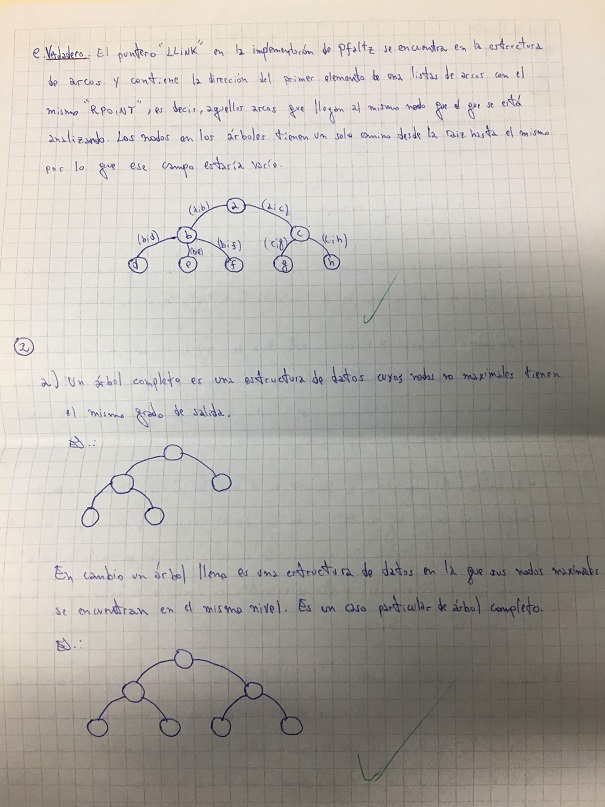 e. Verdadero. El puntero "LLINK" en la implementación de Pfaltz se encuentra en la estructura
de arcos y contiene la dirección del primer elemento de una listas de arcos con el
mismo "RPOINT", es decir, aquellos arcos que llegan al mismo nodo que el que se está
analizando. Los nodos en los árboles tienen un solo camino desde la raiz hasta el mismo
por lo que ese campo estaría vacío.
(a;b) a (a;c)
(b;d) b (b;e) (b;f) (c;g) c (c;h)
d e f g h
2
a) Un árbol completo es una estructura de datos cuyos nodos no maximales tienen
el mismo grado de salida.
Ej.:
En cambio un árbol lleno es una estructura de datos en la que sus nodos maximales
se encuentran en el mismo nivel. Es un caso particular de árbol completo.
Ej.: